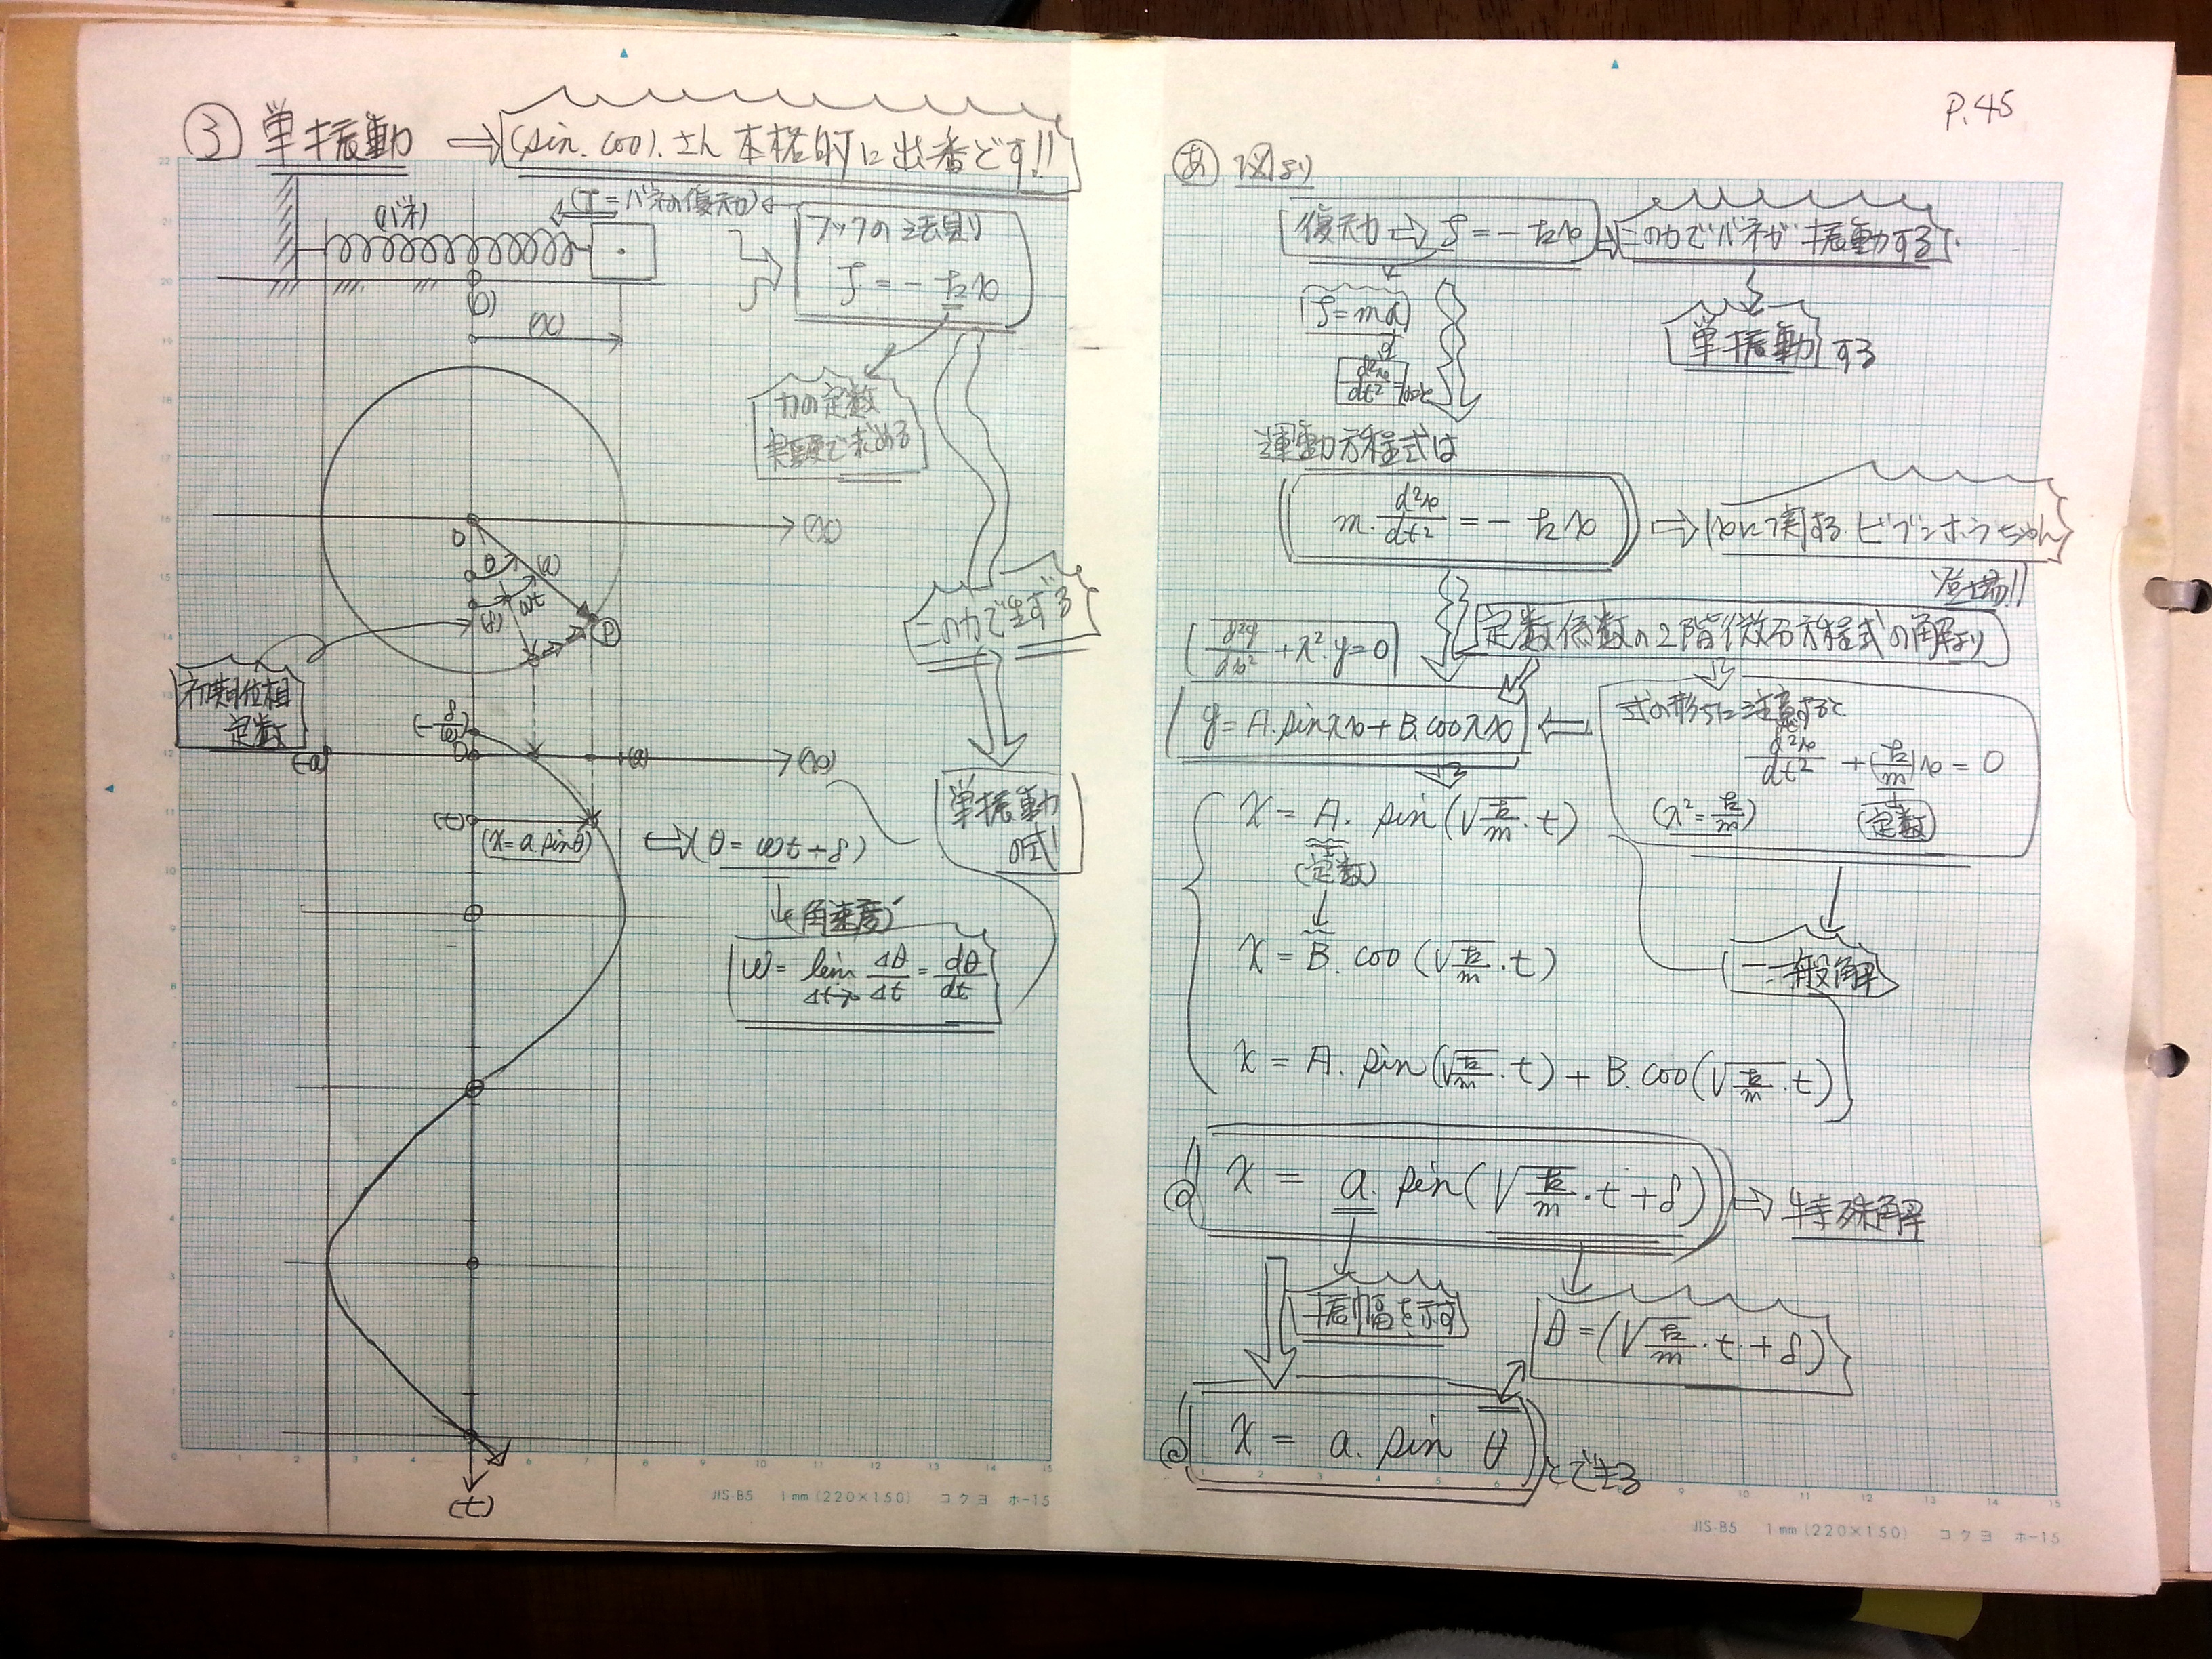 ③ 単振動 ⇒ (sin. cos).さん 本格的に出番です!!
(バネ)
(f = バネの復元力)
フックの法則
f = - kx
(O)
(x)
力の定数
実験で求める
(x)
O
θ
(a)
ωt
(δ)
Ⓟ
この力で生ずる
初期位相
定数
(-δ/ω)
O
(-a)
(a)
(x)
単振動
の式
(t)
(x = a. sinθ)
⇔ (θ = ωt + δ)
(角速度)
ω = lim Δt→0 Δθ/Δt = dθ/dt
(t)
JIS-B5 1mm (220×150) コクヨ ホ-15
P.45
あ 図より
復元力 ⇒ f = - kx ⇒ この力でバネが振動する
f = mα
d²x/dt²
単振動 する
運動方程式は
m. d²x/dt² = - kx ⇒ xに関する ビブンホウちゃん
登場!!
定数係数の2階微分方程式の解より
d²y/dx² + λ². y = 0
y = A. sinλx + B. cosλx
式の形に注意すると
d²x/dt² + (k/m)x = 0
(λ² = k/m)
(定数)
x = A. sin(√k/m . t)
(定数)
x = B. cos(√k/m . t)
一般解
x = A. sin(√k/m . t) + B. cos(√k/m . t)
x = a. sin(√k/m . t + δ) ⇒ 特殊解
振幅を示す
θ = (√k/m . t + δ)
x = a. sin θ とできる
JIS-B5 1mm (220×150) コクヨ ホ-15